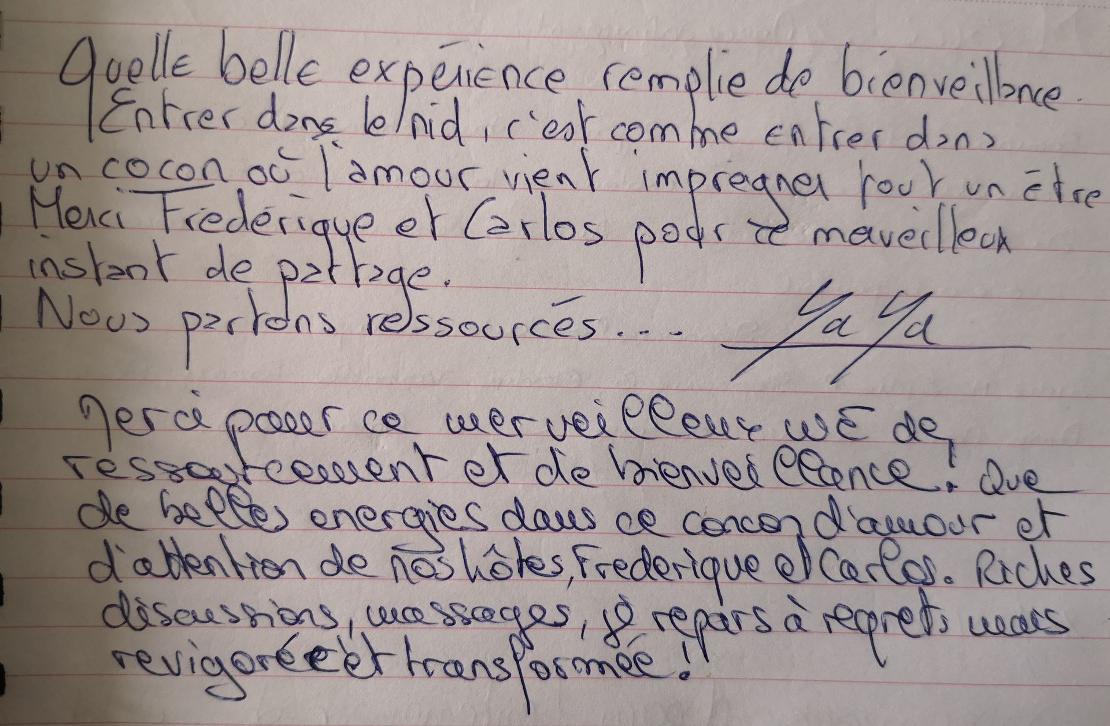 Quelle belle expérience remplie de bienveillance.
Entrer dans le nid, c'est comme entrer dans
un cocon où l'amour vient impregner tout un être
Merci Frédérique et Carlos pour ce maveilleux
instant de partage.
Nous partons ressourcés...
YaYa
Merci pour ce merveilleux WE de
ressourcement et de bienveillance! Que
de belles energies dans ce concon d'amour et
d'attention de nos hôtes, Frederique et Carlos. Riches
discussions, massages, je repars à regrets mais
revigorée et transformée!